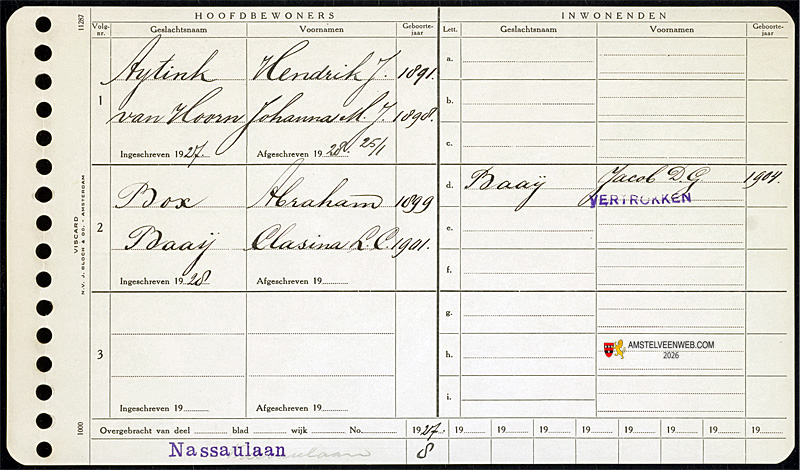 HOOFDBEWONERS INWONENDEN
Volg-nr. Geslachtsnaam Voornamen Geboorte-jaar Lett. Geslachtsnaam Voornamen Geboorte-jaar
11287
Aytink Hendrik J. 1891. a.
1 b.
van Hoorn Johanna M. J. 1898. c.
Ingeschreven 1927. Afgeschreven 1928. 25/1
Box Abraham 1899 d. Baaij Jacob D. G. 1904.
VERTROKKEN
2 e.
Baaij Clasina L. C. 1901. f.
Ingeschreven 1928 Afgeschreven 19
g.
3 h.
AMSTELVEENWEB.COM
2026
i.
Ingeschreven 19 Afgeschreven 19
VISCARD
N.V. J. BLOCH & Co. - AMSTERDAM
1000
Overgebracht van deel blad wijk No. 1927. 19 19 19 19 19 19 19 19
Nassaulaan 8